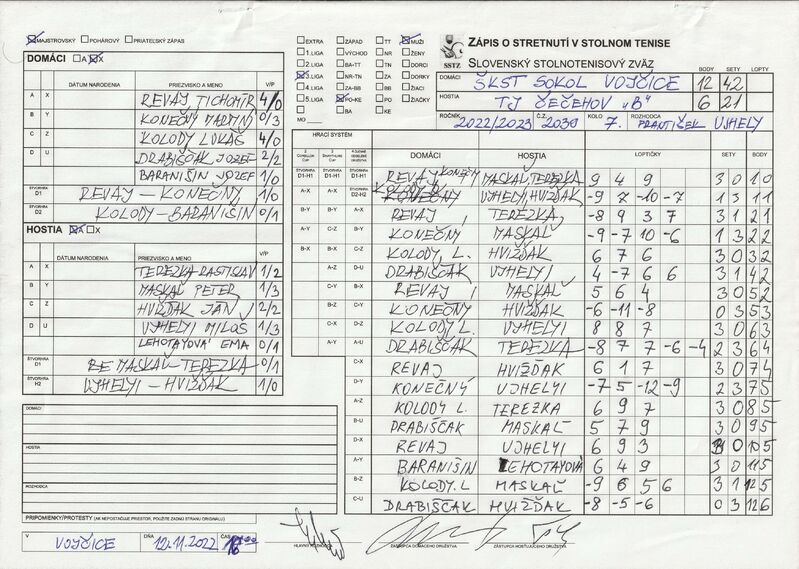 MAJSTROVSKÝ POHÁROVÝ PRIATEĽSKÝ ZÁPAS
DOMÁCI A X
DÁTUM NARODENIA PRIEZVISKO A MENO V/P
A X REVAJ TICHOMÍR 4/0
B Y KONEČNÝ MARTIN 0/3
C Z KOLODY LUKÁŠ 4/0
D U DRABIŠČAK JOZEF 2/2
BARANIŠIN JOZEF 1/0
ŠTVORHRA D1 REVAJ – KONEČNY 1/0
ŠTVORHRA D2 KOLODY – BARANIŠIN 0/1
HOSTIA A X
DÁTUM NARODENIA PRIEZVISKO A MENO V/P
A X TEREZKA RASTISLAV 1/2
B Y MASKAĽ PETER 1/3
C Z HVIŽĎAK JÁN 2/2
D U UJHELYI MILOŠ 1/3
LEHOTAYOVÁ EMA 0/1
ŠTVORHRA D1 MASKAĽ – TEREZKA 0/1
ŠTVORHRA H2 UJHELYI – HVIŽĎAK 1/0
DOMÁCI
HOSTIA
ROZHODCA
PRIPOMIENKY/PROTESTY (AK NEPOSTAČUJE PRIESTOR, POUŽITE ZADNÚ STRANU ORIGINÁLU)
V VOJČICE DŇA 12.11.2022 ČAS
EXTRA ZÁPAD TT MUŽI
1.LIGA VÝCHOD NR ŽENY
2.LIGA BA TN DORCI
3.LIGA NR-TN ZA DORKY
4.LIGA ZA-BB BB ŽIACI
5.LIGA PO-KE PO ŽIAČKY
MO BA KE
SSTZ
ZÁPIS O STRETNUTÍ V STOLNOM TENISE
SLOVENSKÝ STOLNOTENISOVÝ ZVÄZ
BODY SETY LOPTY
DOMÁCI ŠKST SOKOL VOJČICE 12 42
HOSTIA TJ ČEČEHOV „B" 6 21
ROČNÍK 2022/2023 Č.Z. 2030 KOLO 7. ROZHODCA FRANTIŠEK UJHELY
HRACÍ SYSTÉM
DOMÁCI HOSTIA LOPTIČKY SETY BODY
ŠTVORHRA D1-H1 ŠTVORHRA D1-H1 ŠTVORHRA D1-H1 REVAJ KONEČNY MASKAL, TEREZKA 9 4 9 3 0 1 0
A-X A-X ŠTVORHRA D2-H2 KOLODY UJHELYI, HVIŽĎAK -9 7 -10 -7 1 3 1 1
B-Y B-Y A-X REVAJ TEREZKA -8 9 3 7 3 1 2 1
A-Y C-Z B-Y KONEČNY MASKAĽ -9 -7 10 -6 1 3 2 2
B-X B-X C-Z KOLODY L. HVIŽĎAK 6 7 6 3 0 3 2
A-Z D-U DRABIŠČAK UJHELYI 4 -7 6 6 3 1 4 2
C-Y B-X REVAJ MASKAĽ 5 6 4 3 0 5 2
B-Z C-Y KONEČNY HVIŽĎAK -6 -11 -8 0 3 5 3
C-X D-Z KOLODY L. UJHELYI 8 8 7 3 0 6 3
A-Y A-U DRABIŠČAK TEREZKA -8 7 7 -6 -4 2 3 6 4
C-X REVAJ HVIŽĎAK 6 1 7 3 0 7 4
D-Y KONEČNÝ UJHELYI -7 5 -12 -9 2 3 7 5
A-Z KOLODY L. TEREZKA 6 9 7 3 0 8 5
B-U DRABIŠČAK MASKAĽ 5 7 9 3 0 9 5
D-X REVAJ UJHELYI 6 9 3 3 0 10 5
A-Y BARANIŠIN LEHOTAYOVÁ 6 4 9 3 0 11 5
B-Z KOLODY. L MASKAĽ -9 6 5 6 3 1 12 5
C-U DRABIŠČAK HVIŽĎAK -8 -5 -6 0 3 12 6
HLAVNÝ ROZHODCA ZÁSTUPCA DOMÁCEHO DRUŽSTVA ZÁSTUPCA HOSŤUJÚCEHO DRUŽSTVA